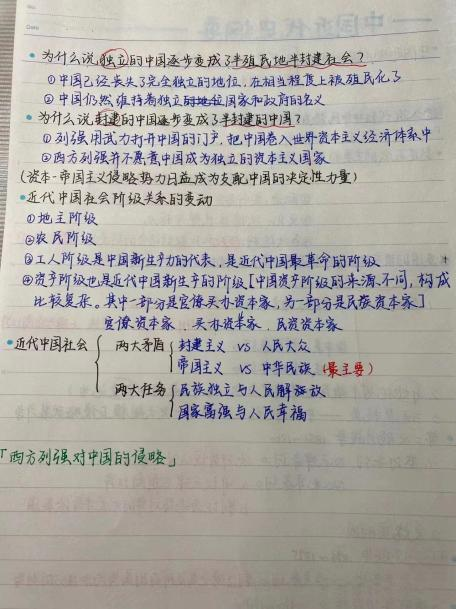 • 为什么说独立的中国逐步变成了半殖民地半封建社会？
①中国已经丧失了完全独立的地位，在相当程度上被殖民化了
②中国仍然维持着独立的地位国家和政府的名义
• 为什么说封建的中国逐步变成了半封建的中国？
①列强用武力打开中国的门户，把中国卷入世界资本主义经济体系中
②西方列强并不愿意中国成为独立的资本主义国家
(资本-帝国主义侵略势力日益成为支配中国的决定性力量)
• 近代中国社会阶级关系的变动
①地主阶级
②农民阶级
③工人阶级是中国新生产力的代表，是近代中国最革命的阶级
④资产阶级也是近代中国新生产的阶级[中国资产阶级的来源不同，构成
比较复杂。其中一部分是官僚买办资本家，另一部分是民族资本家]
官僚资本家 买办资本家 民资资本家
• 近代中国社会 两大矛盾 封建主义 vs 人民大众
帝国主义 vs 中华民族 (最主要)
两大任务 民族独立与人民解放
国家富强与人民幸福
「西方列强对中国的侵略」